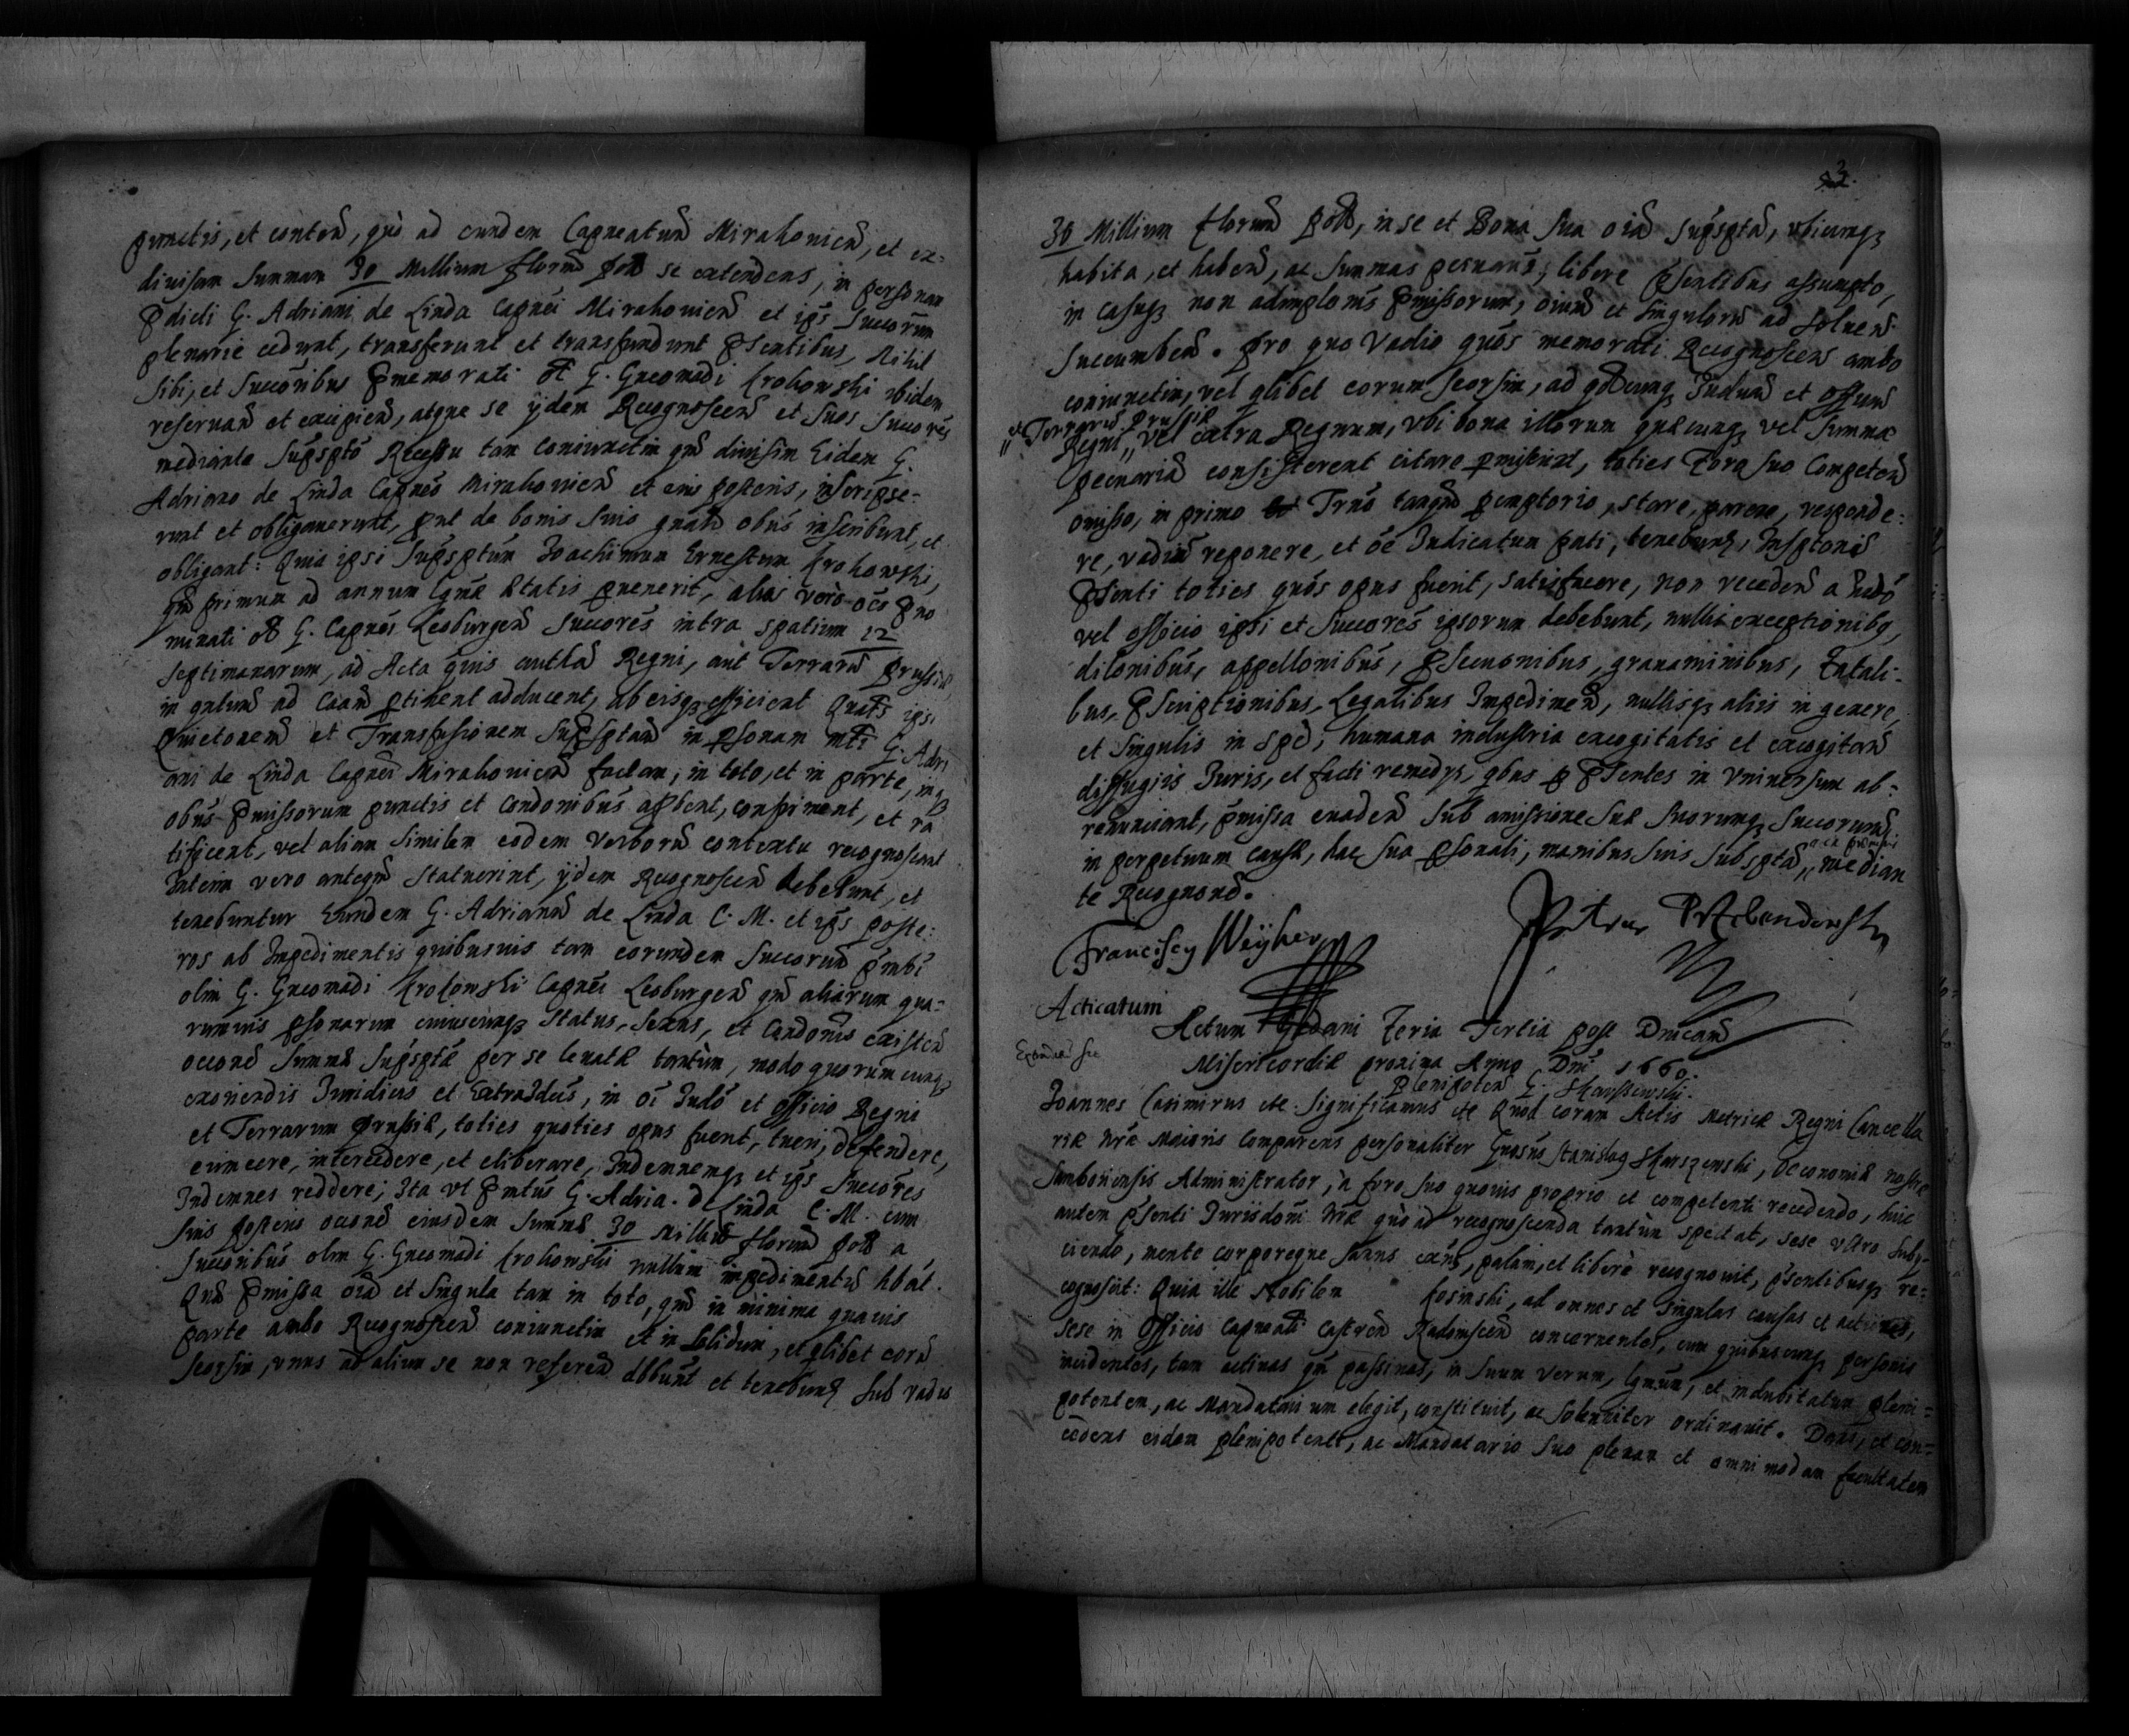 punctis, et conten, quò ad eundem Capneatum Mirahovien, et ex-
divisam summam 30 Millium floren pol se extendens, in personam
pdicti G. Adriani de Linda Capnei Mirahovien et ips succorum
plenarie cedunt, transferunt et transfundunt psentibus, Nihil
sibi, et succoribus pmemorati olt G. Gneomadi Krokowski ibidem
reservan et excipien, atque se ijdem Recognoscen et suos succores
mediante supspto Recessu tam coniunctim qm divisim Eidem G.
Adriano de Linda Capneo Mirahovien et eius posteris, inscripse-
runt et obligaverunt, put de bonis suis gnalr obus inscribunt, et
obligant: Quia ipsi supsptum Joachimum Ernestum Krokowski,
qm primum ad annum lgmæ ætatis pvenerit, alios verò oes pno
minati olt G. Capnei Leoburgen succores intra spatium 12
septimanarum, ad Acta quis authen Regni, aut Terrarum Prussiæ
in qntum ad eam ptinent adducent, ab eisq efficient Quats ipsi
Quietonem et Transfusionem supsptam in psonam mti G. Adri
ani de Linda Capnei Mirahovien factam, in toto, et in parte, inq
obus pmissorum punctis et condonibus apbent, confirment, et ra
tificent, vel aliam similem eodem verborum contextu recognoscant
Interim vero anteqm statuerint, ijdem Recognoscen debebunt, et
tenebuntur Eundem G. Adrianum de Linda C. M. et ips poste-
ros ab Impedimentis quibusvis tam eorundem succorum pmti
olim G. Gneomadi Krokowski Capnei Leoburgen qm aliarum qua-
rumvis psonarum cuiuscunq status, sexus, et Condonis existen
occone summæ supsptæ per se levatæ tantùm, modo quorumcunq
exoriendis Juridicis et Extrajdcis, in oi Judo et officio Regni
et Terrarum Prussiæ, toties quoties opus fuerit, tueri, defendere,
evincere, intercedere, et eliberare, Indemnemq et ips succores
Indemnes reddere; Ita vt pmtus G. Adria. de Linda C. M. cum
suis posteris occone eiusdem summæ 30 Millium floren pol a
succoribus olim G. Gneomadi Krokowski nullum impedimentum hbat.
Quæ pmissa oia et singula tam in toto, qm in minima quavis
parte ambo Recognoscen coniunctim et in solidum, et qlibet eorum
seorsim, unus ad alium se non referen dbbunt et tenebunt sub vadio
3.
30 Millium floren pol, in se et Bona sua oia supspta, vbicunq
habita, et haben, ac summas pecunars, libere psentibus assumpto,
in casuq non adimplonis pmissorum, oium et singulorum ad solven
succumben. Pro quo Vadio quos memorati Recognoscen ambo
coniunctim, vel qlibet eorum seorsim, ad qdcunq Judum et offum
et Terrarum Prussiæ
Regni,, vel extra Regnum, vbi bona illorum quæcunq vel summa
pecuniaria consisterent citare pmiserint, toties Foro suo Competen
omisso, in primo Trno tanqm pemptorio, stare, parere, responde-
re, vadium reponere, et oe Judicatum pati, tenebunt, Insptoni
psenti toties quos opus fuerit, satisfacere, non receden a Judo
vel officio ipsi et succores ipsorum debebunt, nullis exceptionibq,
dilonibus, appellonibus, psecuonibus, gravaminibus, Fatali-
bus, pscriptionibus, Legalibus Impedimen, nullisq aliis in genere,
et singulis in spe, humana industria excogitatis et excogitan
diffugiis Juris, et facti remedijs, qbus p psentes in Vniversum ab-
renunciant, pmissa evaden sub amissione suæ suorumq succorum
in perpetuum causæ, hac sua psonali, manibus suis subspta,, median
te Recognone.
Francisscy Weyher Piotrus Przebendowski
Acticatum
Actum Gedani Feria Tertia post Dnicam
Misericordiæ proxima Anno Dni 1660.
Plenipoten G. Skarszewski.
Joannes Casimirus etc. Significamus etc Quod coram Actis Metricæ Regni Cancella
riæ nræ Maioris Comparens personaliter Gnosus Stanislaq Skarszewski, Oeconomiæ nostræ
Samboriensis Administrator, à foro suo quovis proprio et competenti recedendo, huic
autem psenti Jurisdoni nræ quò ad recognoscenda tantùm spectat, sese vltro subij-
ciendo, mente corporeque sanus exns, palam, et liberè recognovit, psentibusq re-
cognoscit: Quia ille Nobilem Kosinski, ad omnes et singulas causas et actiones,
sese in officio Capneali Castren Radomscen concernentes, cum quibuscunq personis
incidentes, tam activas qm passivas, in suum verum, lgmum, et indubitatum pleni-
potentem, ac Mandatarium elegit, constituit, ac solenniter ordinavit. Dans, et con-
cedens eidem plenipotenti, ac Mandatario suo plenam et omnimodam facultatem